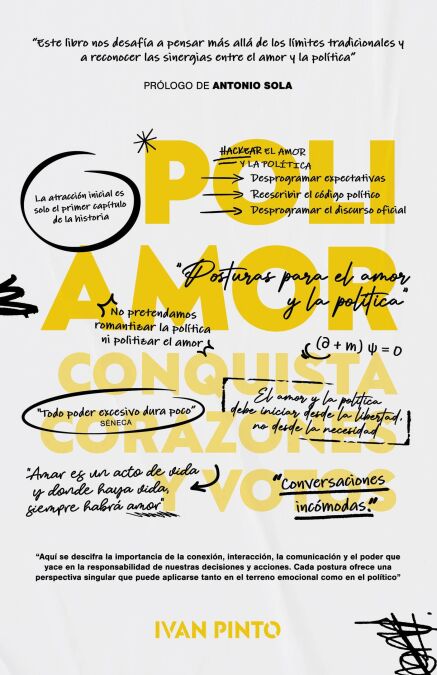 “Este libro nos desafía a pensar más allá de los límites tradicionales y
a reconocer las sinergias entre el amor y la política”
PRÓLOGO DE ANTONIO SOLA
POLI
HACKEAR EL AMOR
Y LA POLÍTICA
Desprogramar expectativas
Reescribir el código político
Desprogramar el discurso oficial
La atracción inicial es
solo el primer capítulo
de la historia
AMOR
“Posturas para el amor
y la política”
No pretendamos
romantizar la política
ni politizar el amor
(∂ + m) ψ = 0
CONQUISTA
CORAZONES
Y VOTOS
“Todo poder excesivo dura poco”
SÉNECA
El amor y la política
debe iniciar desde la libertad,
no desde la necesidad
“Amar es un acto de vida
y donde haya vida,
siempre habrá amor”
“Conversaciones
incómodas.”
“Aquí se descifra la importancia de la conexión, interacción, la comunicación y el poder que
yace en la responsabilidad de nuestras decisiones y acciones. Cada postura ofrece una
perspectiva singular que puede aplicarse tanto en el terreno emocional como en el político”
IVAN PINTO